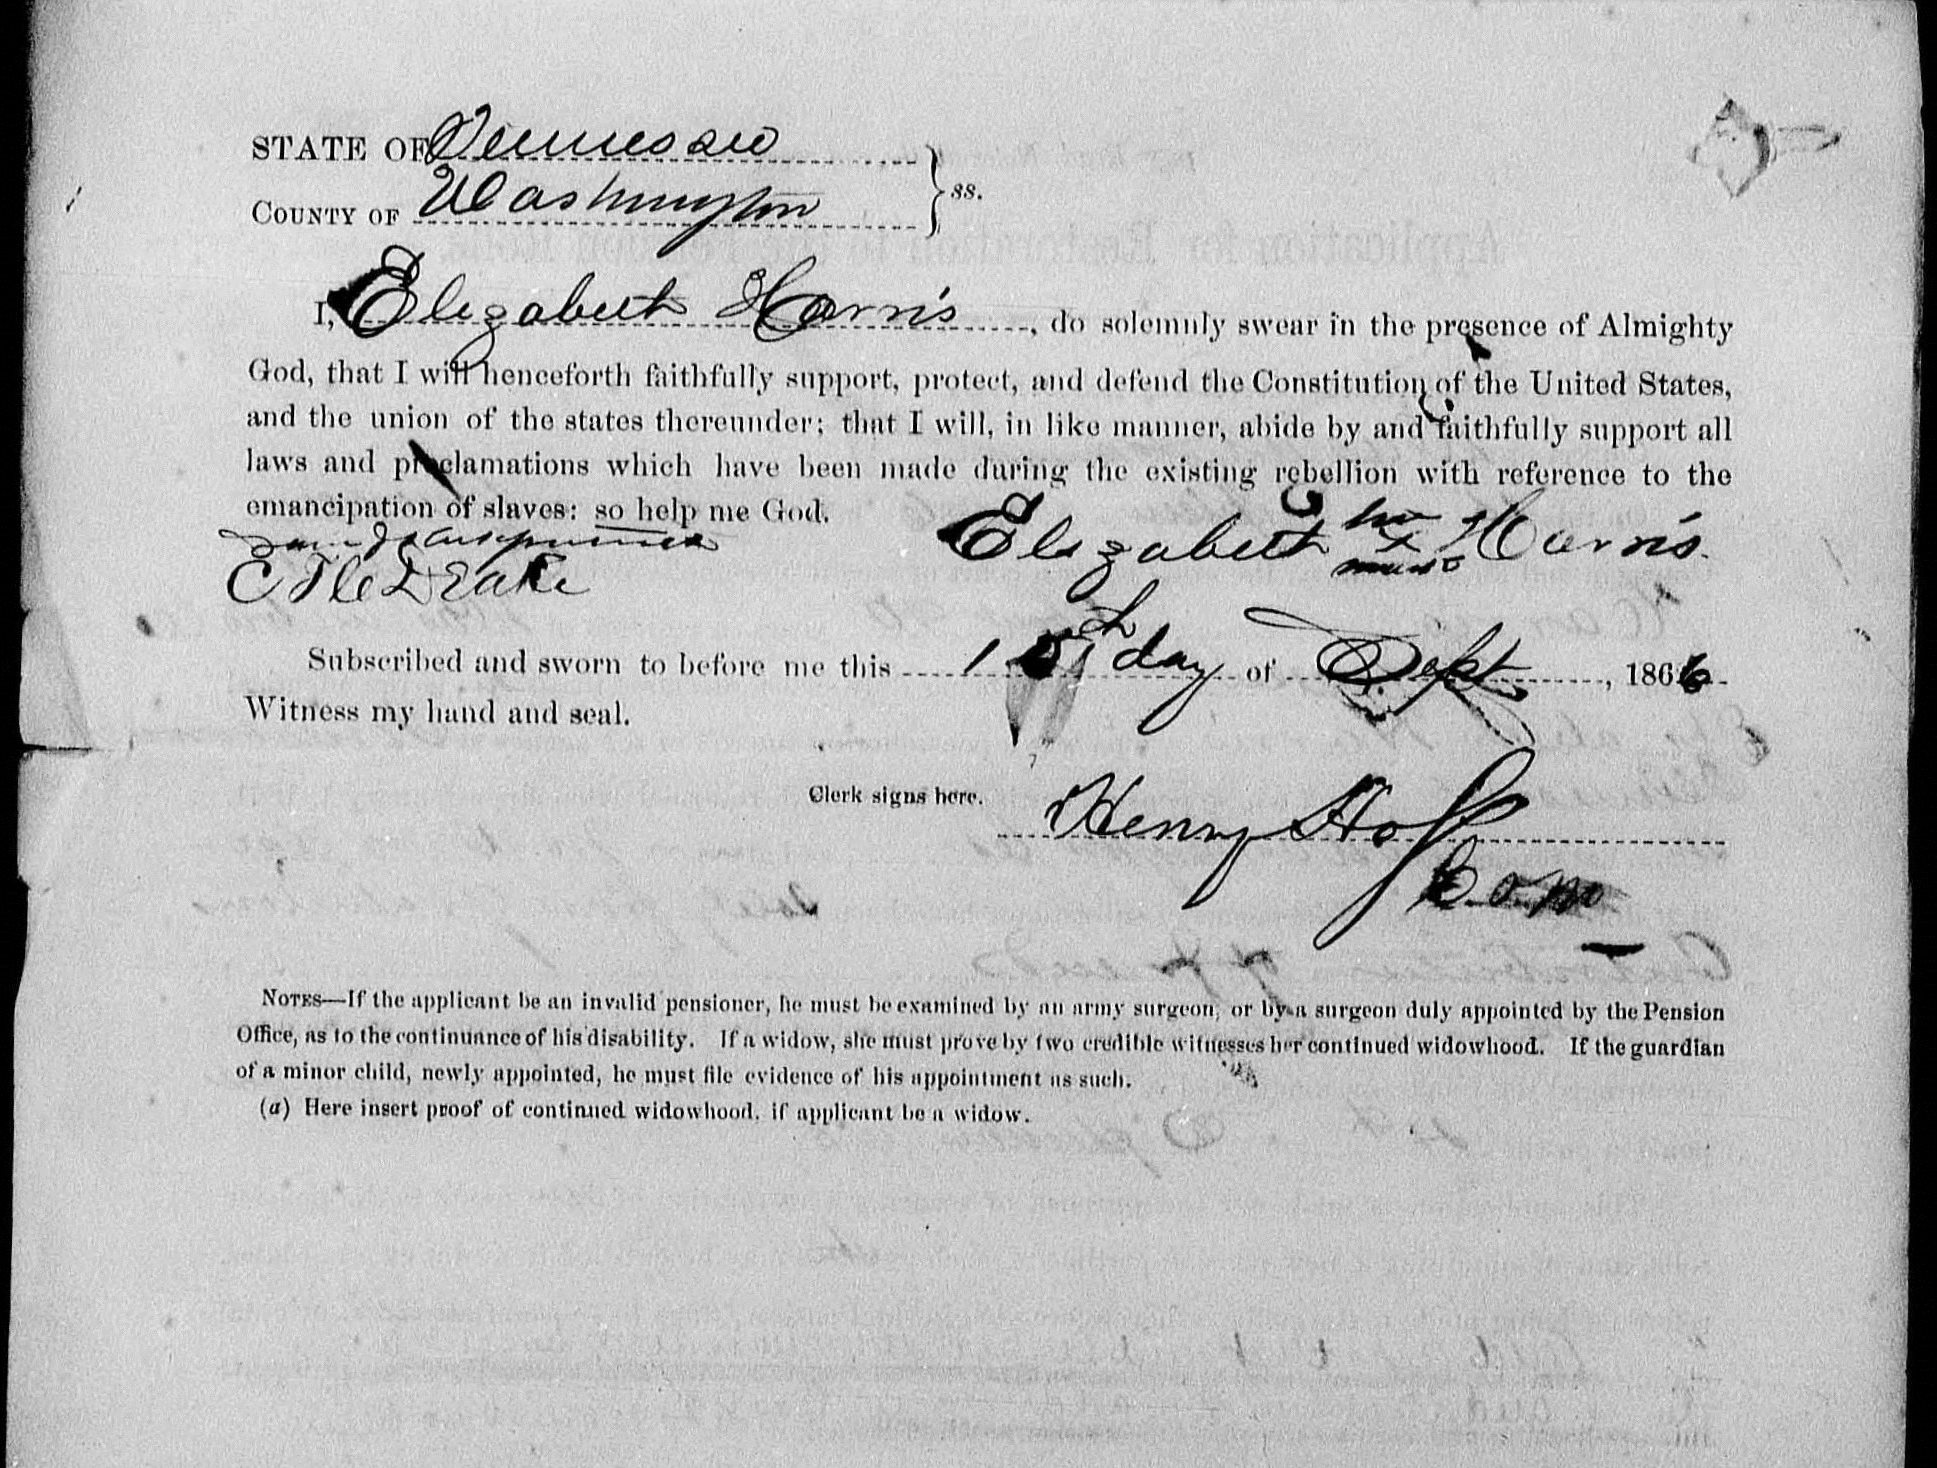 STATE OF Tennessee
COUNTY OF Washington } ss.
I, Elizabeth Harris, do solemnly swear in the presence of Almighty
God, that I will henceforth faithfully support, protect, and defend the Constitution of the United States,
and the union of the states thereunder; that I will, in like manner, abide by and faithfully support all
laws and proclamations which have been made during the existing rebellion with reference to the
emancipation of slaves: so help me God.
Elizabeth her X mark Harris
Drake
Subscribed and sworn to before me this 15th day of Sept, 1866
Witness my hand and seal.
Clerk signs here. Henry Hoss
NOTES—If the applicant be an invalid pensioner, he must be examined by an army surgeon, or by a surgeon duly appointed by the Pension
Office, as to the continuance of his disability. If a widow, she must prove by two credible witnesses her continued widowhood. If the guardian
of a minor child, newly appointed, he must file evidence of his appointment as such.
(a) Here insert proof of continued widowhood, if applicant be a widow.